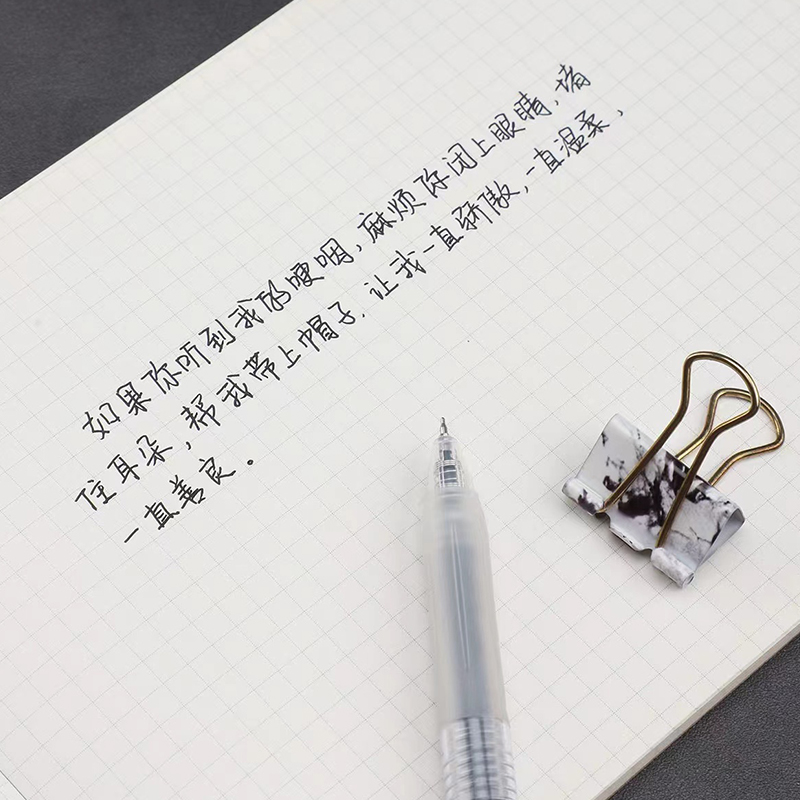 如果你听到我的哽咽,麻烦你闭上眼睛,堵
住耳朵,帮我带上帽子,让我一直骄傲,一直温柔,
一直善良。